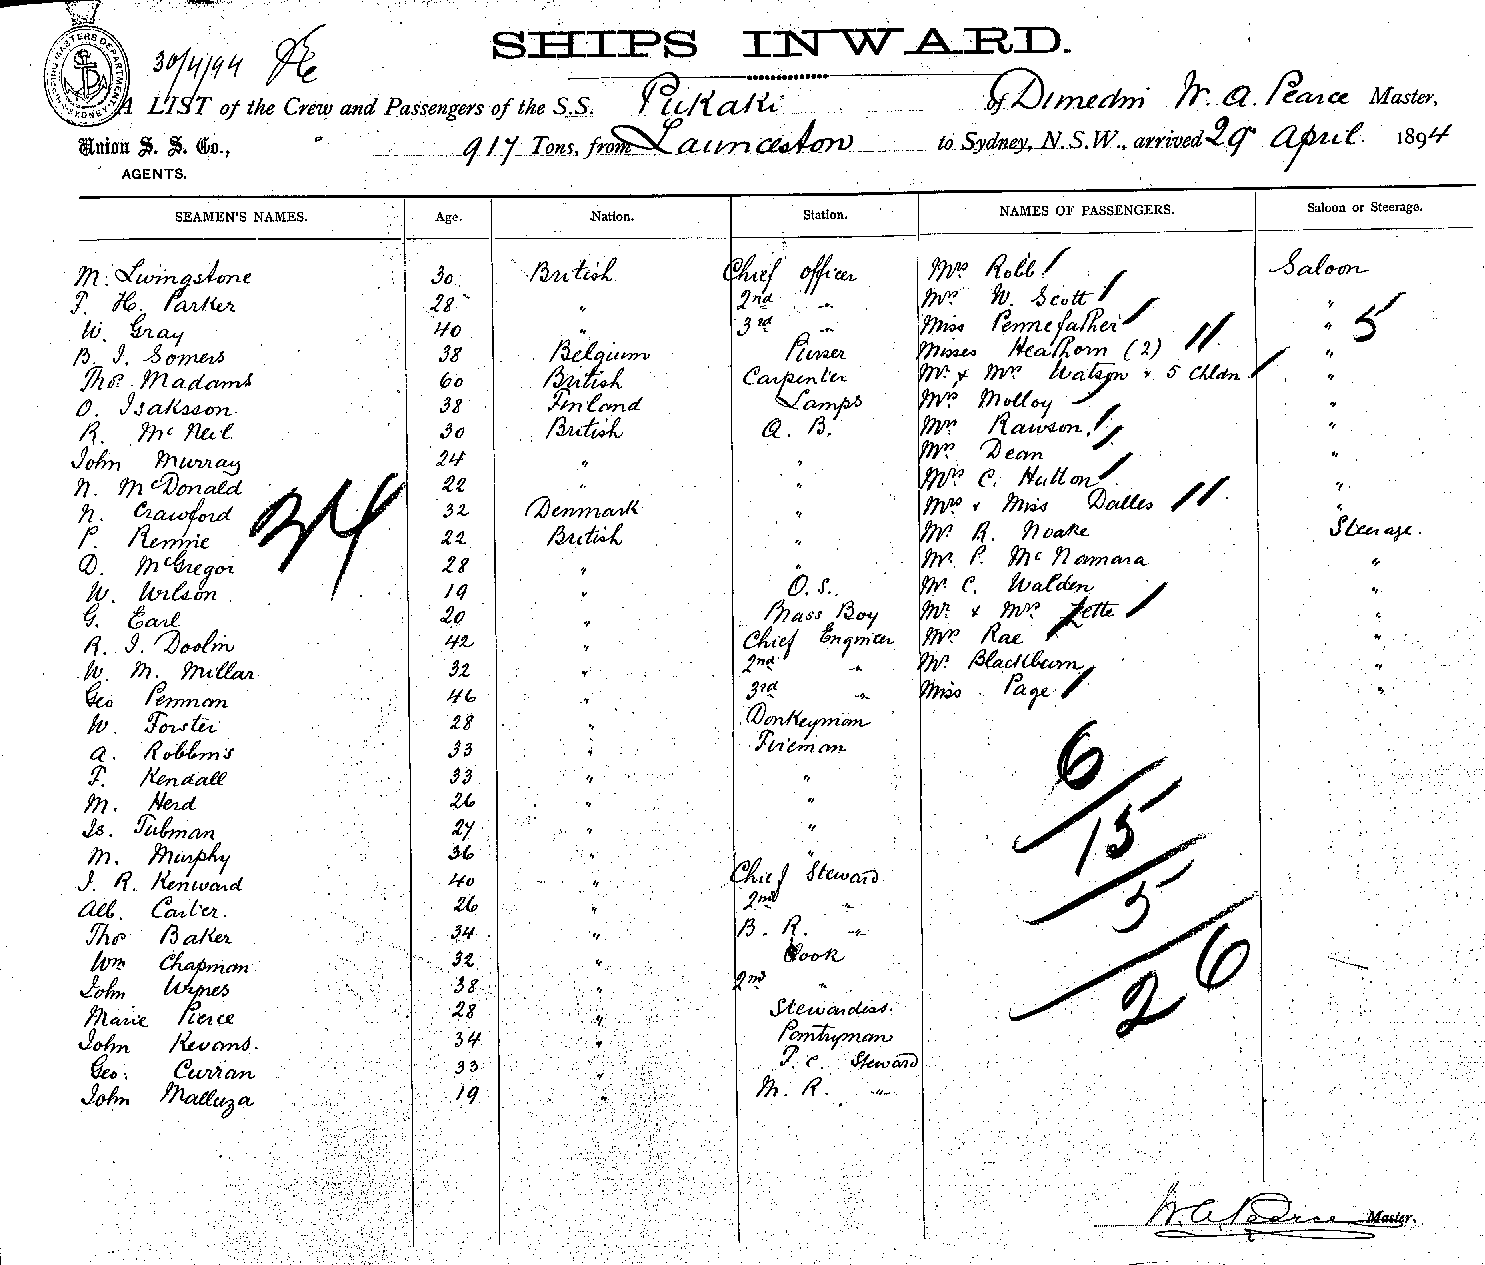 SHIPS INWARD.
30/4/94
A LIST of the Crew and Passengers of the S.S. Pukaki of Dunedin W. A. Pearce Master,
Union S. S. Co., 917 Tons, from Launceston to Sydney, N.S.W., arrived 29 April 1894
AGENTS.
SEAMEN'S NAMES. Age. Nation. Station. NAMES OF PASSENGERS. Saloon or Steerage.
M. Livingstone 30 British Chief Officer Mrs Robb Saloon
F. H. Parker 28 " 2nd " Mr. W. Scott "
W. Gray 40 " 3rd " Miss Pennefather " 5
B. J. Somers 38 Belgium Purser Misses Heathorn (2) "
Thos Madams 60 British Carpenter Mr. & Mrs Watson & 5 Chldn "
O. Isaksson 38 Finland Lamps Mrs Molloy "
R. McNeil 30 British A. B. Mrs Rawson "
John Murray 24 " " Mr. Dean "
N. McDonald 22 " " Mrs C. Hutton "
N. Crawford 32 Denmark " Mrs & Miss Dalles "
P. Rennie 22 British " Mr. R. Noake Steerage.
34
D. McGregor 28 " " Mr. P. McNamara "
W. Wilson 19 " O. S. Mr. C. Walden "
G. Earl 20 " Mass Boy Mr. & Mrs Zette "
R. J. Doolin 42 " Chief Engineer Mrs Rae "
W. M. Millar 32 " 2nd " Mr. Blackburn "
Geo Penman 46 " 3rd " Miss Page "
W. Forster 28 " Donkeyman
A. Robbins 33 " Fireman
F. Kendall 33 " " 6
M. Herd 26 " "
Js. Tubman 27 " " 15
M. Murphy 36 " "
J. R. Kenward 40 " Chief Steward
Alb. Carter. 26 " 2nd " 5
Thos Baker 34 " B. R. "
Wm Chapman 32 " Cook
John Wynes 38 " 2nd " 26
Marie Pierce 28 " Stewardess.
John Kevans. 34 " Pantryman
Geo. Curran 33 " F. C. Steward
John Malluza 19 " M. R. "
W. A. Pearce Master.